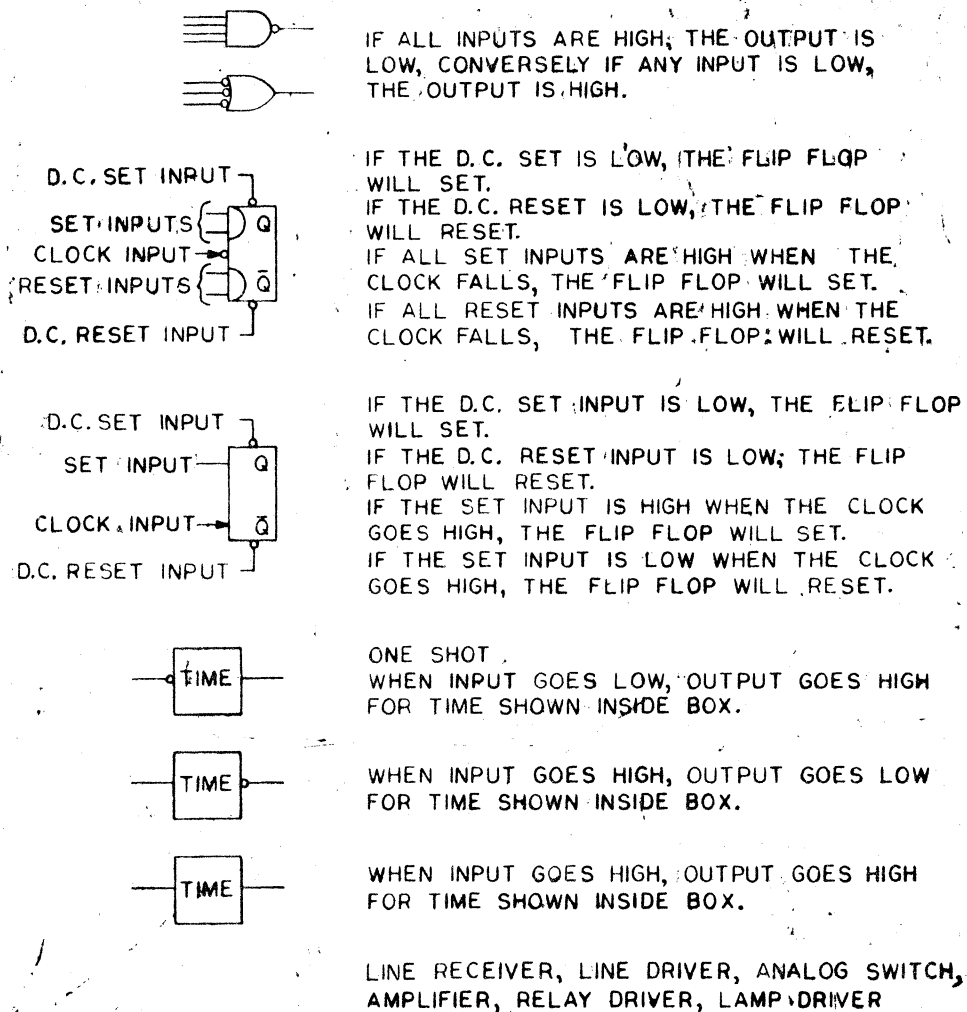 IF ALL INPUTS ARE HIGH, THE OUTPUT IS
LOW, CONVERSELY IF ANY INPUT IS LOW,
THE OUTPUT IS HIGH.
D.C. SET INPUT
SET INPUTS
CLOCK INPUT
RESET INPUTS
D.C. RESET INPUT
Q
Q̄
IF THE D.C. SET IS LOW, THE FLIP FLOP
WILL SET.
IF THE D.C. RESET IS LOW, THE FLIP FLOP
WILL RESET.
IF ALL SET INPUTS ARE HIGH WHEN THE
CLOCK FALLS, THE FLIP FLOP WILL SET.
IF ALL RESET INPUTS ARE HIGH WHEN THE
CLOCK FALLS, THE FLIP FLOP WILL RESET.
D.C. SET INPUT
SET INPUT
CLOCK INPUT
D.C. RESET INPUT
Q
Q̄
IF THE D.C. SET INPUT IS LOW, THE FLIP FLOP
WILL SET.
IF THE D.C. RESET INPUT IS LOW, THE FLIP
FLOP WILL RESET.
IF THE SET INPUT IS HIGH WHEN THE CLOCK
GOES HIGH, THE FLIP FLOP WILL SET.
IF THE SET INPUT IS LOW WHEN THE CLOCK
GOES HIGH, THE FLIP FLOP WILL RESET.
TIME
ONE SHOT
WHEN INPUT GOES LOW, OUTPUT GOES HIGH
FOR TIME SHOWN INSIDE BOX.
TIME
WHEN INPUT GOES HIGH, OUTPUT GOES LOW
FOR TIME SHOWN INSIDE BOX.
TIME
WHEN INPUT GOES HIGH, OUTPUT GOES HIGH
FOR TIME SHOWN INSIDE BOX.
LINE RECEIVER, LINE DRIVER, ANALOG SWITCH,
AMPLIFIER, RELAY DRIVER, LAMP DRIVER